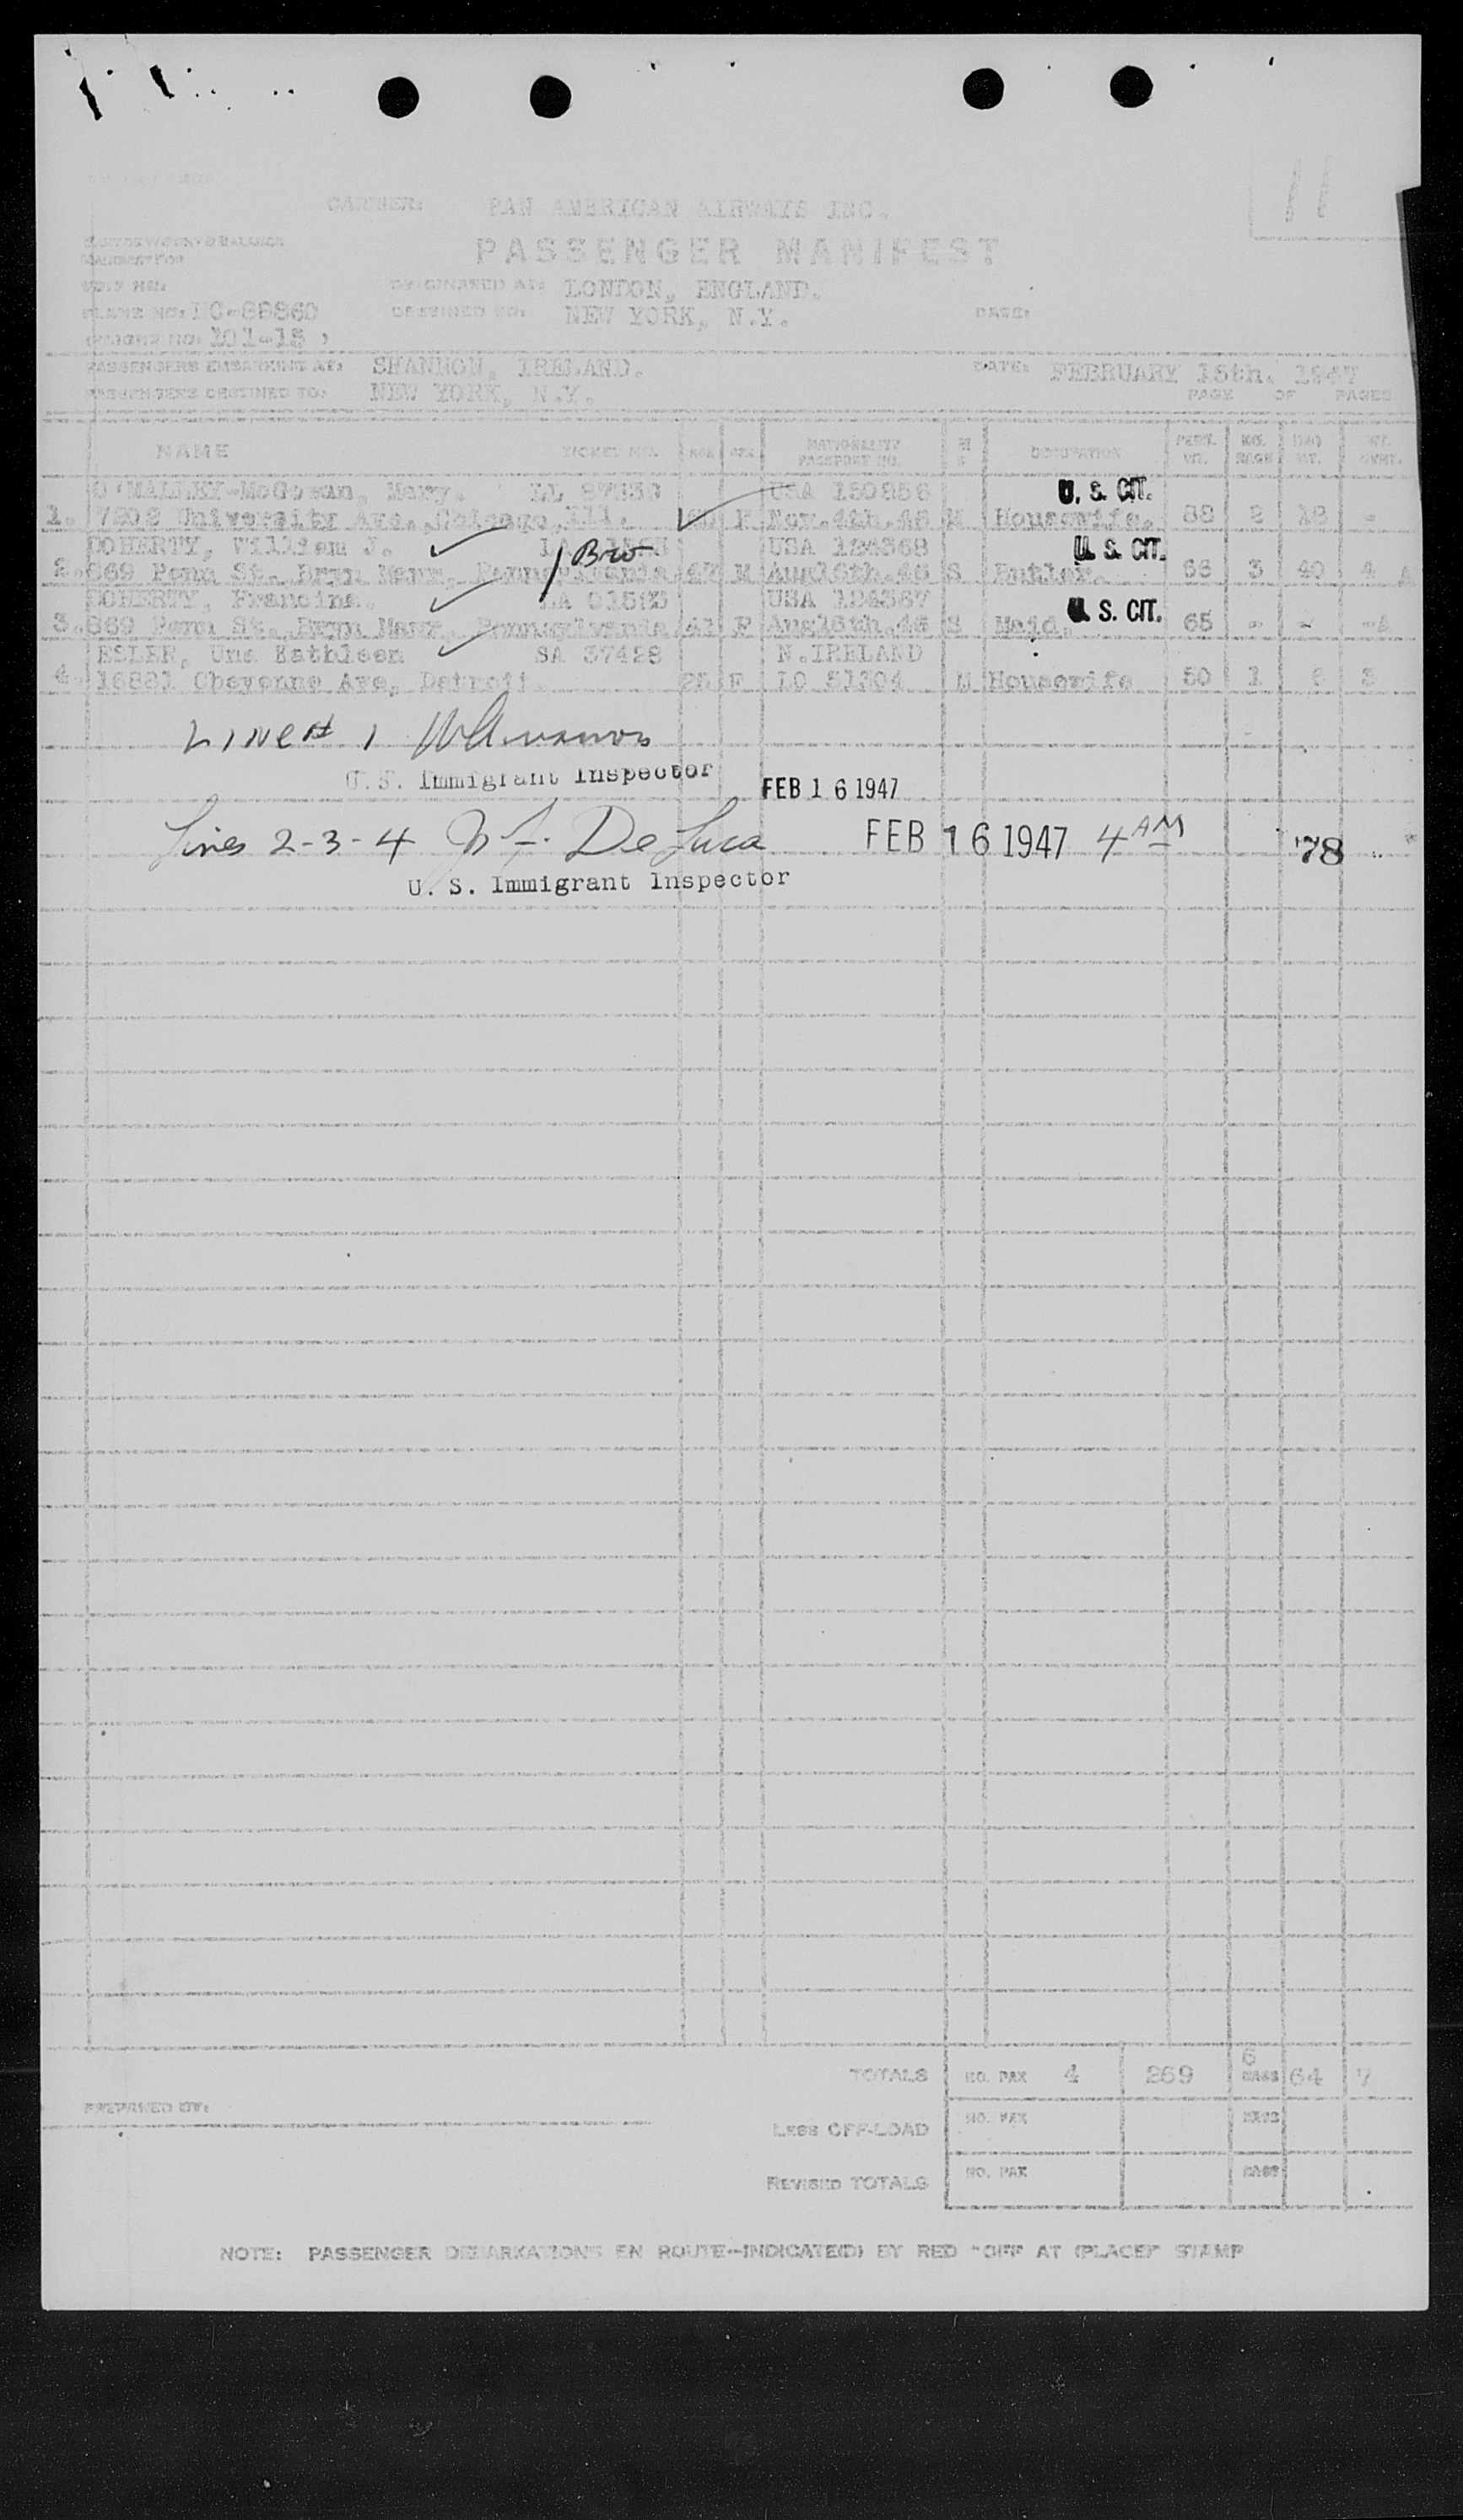 11
CARRIER: PAN AMERICAN AIRWAYS INC.
PASSENGER MANIFEST
ORIGINATED AT: LONDON, ENGLAND.
PLANE NO: NC-88860 DESTINED TO: NEW YORK, N.Y. DATE:
101-15
PASSENGERS EMBARKING AT: SHANNON, IRELAND. DATE: FEBRUARY 15th. 1947
PASSENGERS DESTINED TO: NEW YORK, N.Y. PAGE OF PAGES
NAME TICKET NO. AGE SEX NATIONALITY PASSPORT NO. OCCUPATION
O'MALLEY-McGowan, Mary. USA U. S. CIT.
1. 7202 University Ave., Chicago, Ill. F Nov. 4th. 46 M Housewife. 88 2 18 -
DOHERTY, William J. USA U. S. CIT.
2. 869 Penn St. Bryn Mawr, Pennsylvania M Aug16th.46 S Butler. 3 40 4
/ Bro
DOHERTY, Francina. USA U. S. CIT.
3. 869 Penn St. Bryn Mawr, Pennsylvania 41 F Aug16th.46 S Maid. 65 - - -
ESLER, Una Kathleen SA 37428 N.IRELAND
4. Cheyenne Ave, Detroit. F LO M Housewife 50 1 6 3
LINE # 1
U.S. Immigrant Inspector FEB 16 1947
Lines 2-3-4 De Luca FEB 16 1947 4 AM 78
U. S. Immigrant Inspector
TOTALS NO. PAX 4 269 6 BAGS 64 7
PREPARED BY:
LESS OFF-LOAD NO. PAX BAGS
REVISED TOTALS NO. PAX BAGS
NOTE: PASSENGER DEBARKATIONS EN ROUTE-INDICATE(D) BY RED "OFF AT (PLACE)" STAMP